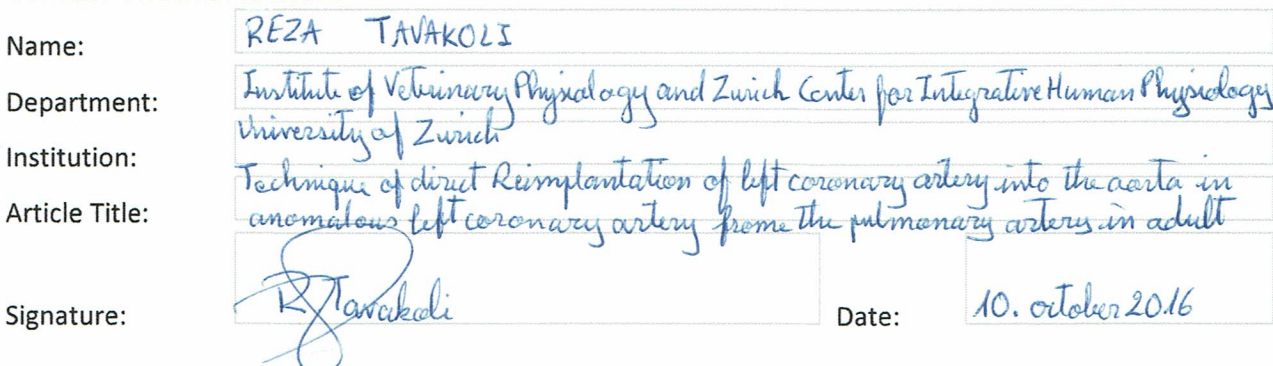 Name: REZA TAVAKOLI
Department: Institute of Veterinary Physiology and Zurich Center for Integrative Human Physiology
Institution: University of Zurich
Article Title: Technique of direct Reimplantation of left coronary artery into the aorta in
anomalous left coronary artery frome the pulmonary artery in adult
Signature: R Tavakoli Date: 10. october 2016